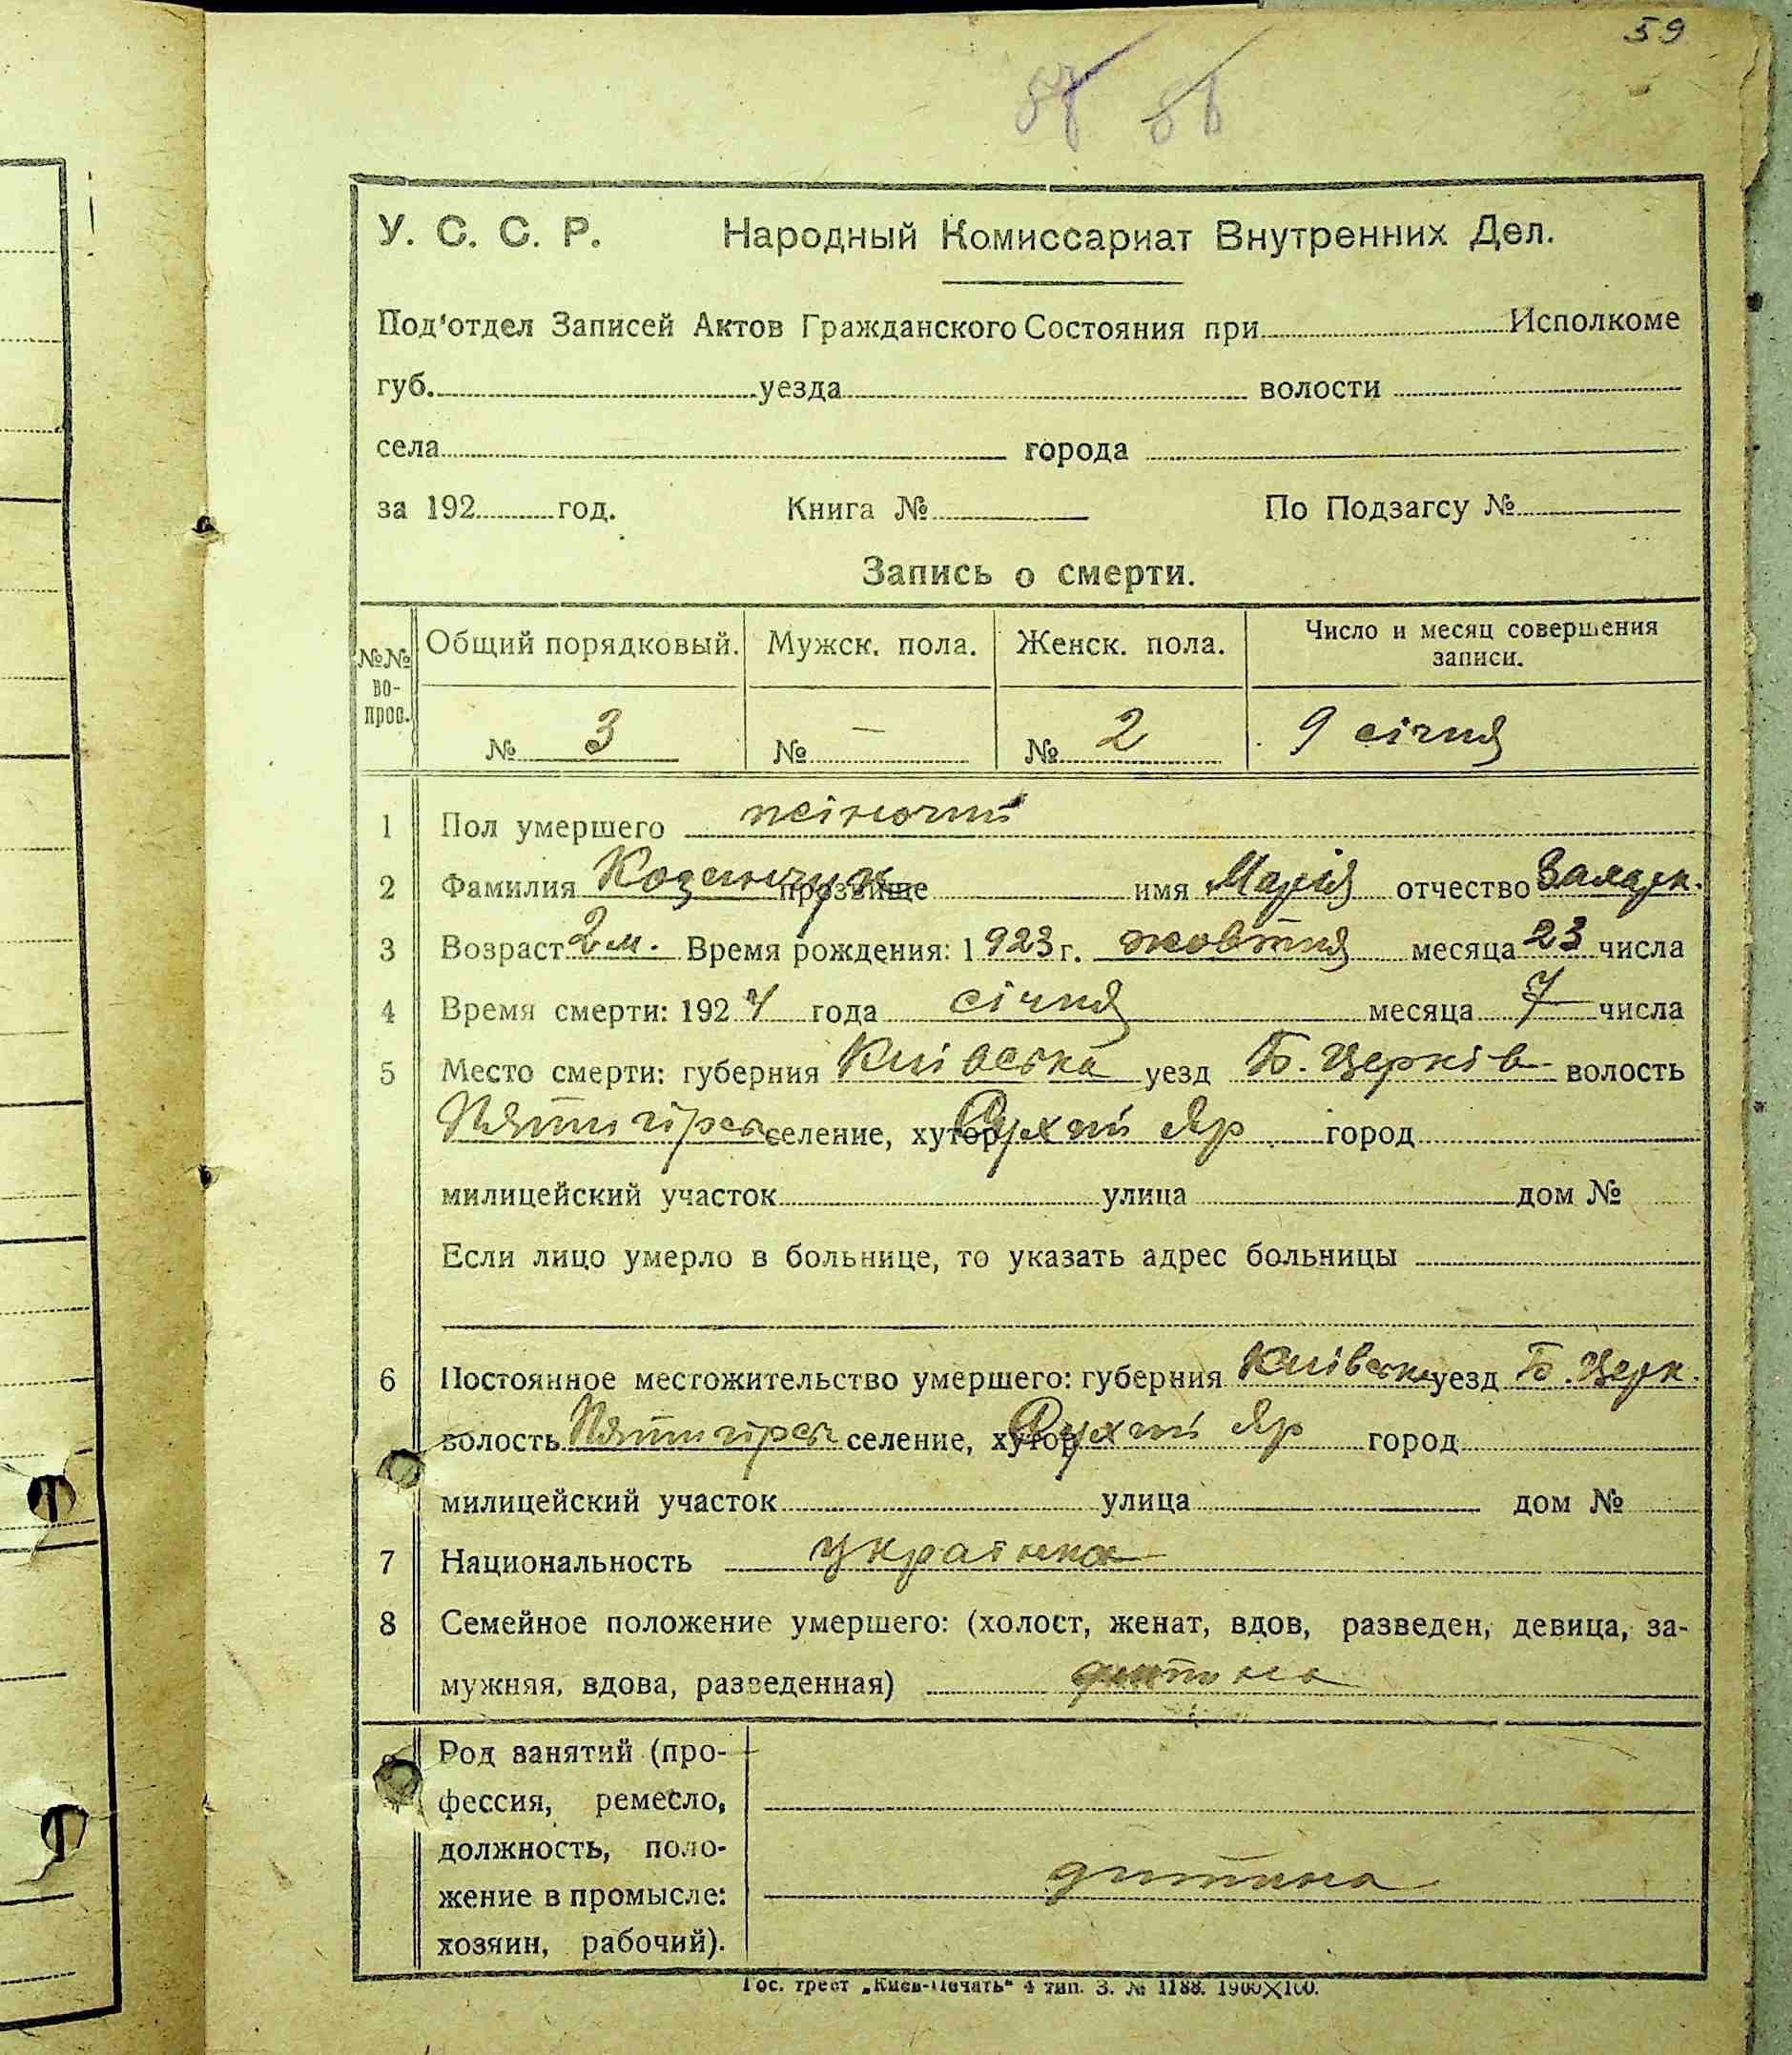 59
У. С. С. Р. Народный Комиссариат Внутренних Дел.
Под'отдел Записей Актов Гражданского Состояния при Исполкоме
губ. уезда волости
села города
за 192 год. Книга № По Подзагсу №
Запись о смерти.
№№ во-прос. Общий порядковый. Мужск. пола. Женск. пола. Число и месяц совершения записи.
№ 3 № — № 2 9 січня
1 Пол умершего жіночий
2 Фамилия прозвище имя Марія отчество
3 Возраст 2 м. Время рождения: 1923 г. жовтня месяца 23 числа
4 Время смерти: 1924 года січня месяца 7 числа
5 Место смерти: губерния Київська уезд Б. Церків волость
Пятигірсь селение, хутор Сухий Яр город
милицейский участок улица дом №
Если лицо умерло в больнице, то указать адрес больницы
6 Постоянное местожительство умершего: губерния Київська уезд Б. Церк.
волость Пятигірсь селение, хутор Сухий Яр город
милицейский участок улица дом №
7 Национальность українка
8 Семейное положение умершего: (холост, женат, вдов, разведен, девица, за-
мужняя, вдова, разведенная) дитина
Род занятий (про-
фессия, ремесло,
должность, поло-
жение в промысле: дитина
хозяин, рабочий).
Гос. трест „Киев-Печать“ 4 тип. З. № 1188. 1900×100.